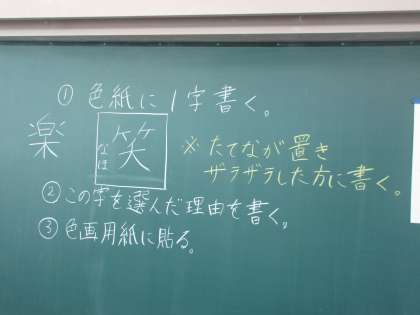 ① 色紙に1字書く。
楽
笑
なほ
※ たてなが置き
ザラザラした方に書く。
② この字を選んだ理由を書く。
③ 色画用紙に貼る。